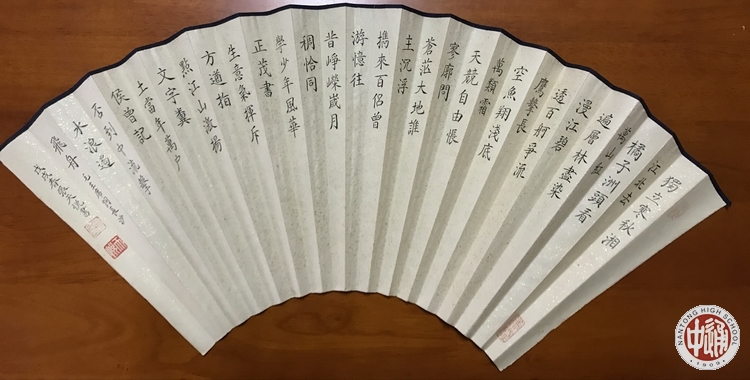 獨立寒秋湘
江北去
橘子洲頭看
萬山紅
遍層林盡染
漫江碧
透百舸爭流
鷹擊長
空魚翔淺底
萬類霜
天競自由悵
寥廓問
蒼茫大地誰
主沉浮
攜來百侶曾
游憶往
昔崢嶸歲月
稠恰同
學少年風華
正茂書
生意氣揮斥
方遒指
點江山激揚
文字糞
土當年萬戶
侯曾記
否到中流擊
水浪遏
飛舟
戊戌春
NANTONG HIGH SCHOOL
1909